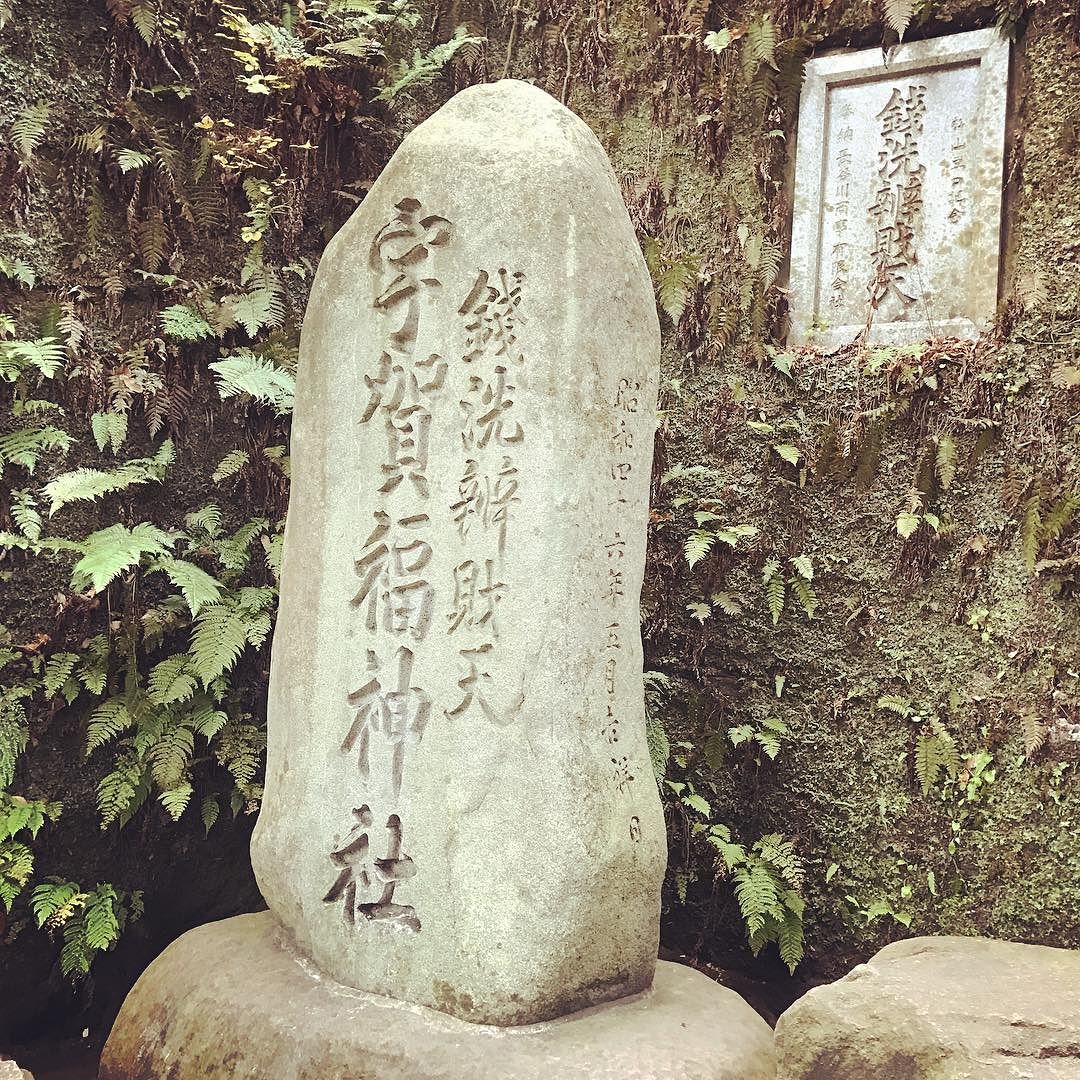 昭和四十六年五月六祥日
錢洗辨財天
宇賀福神社
銭洗辨財天